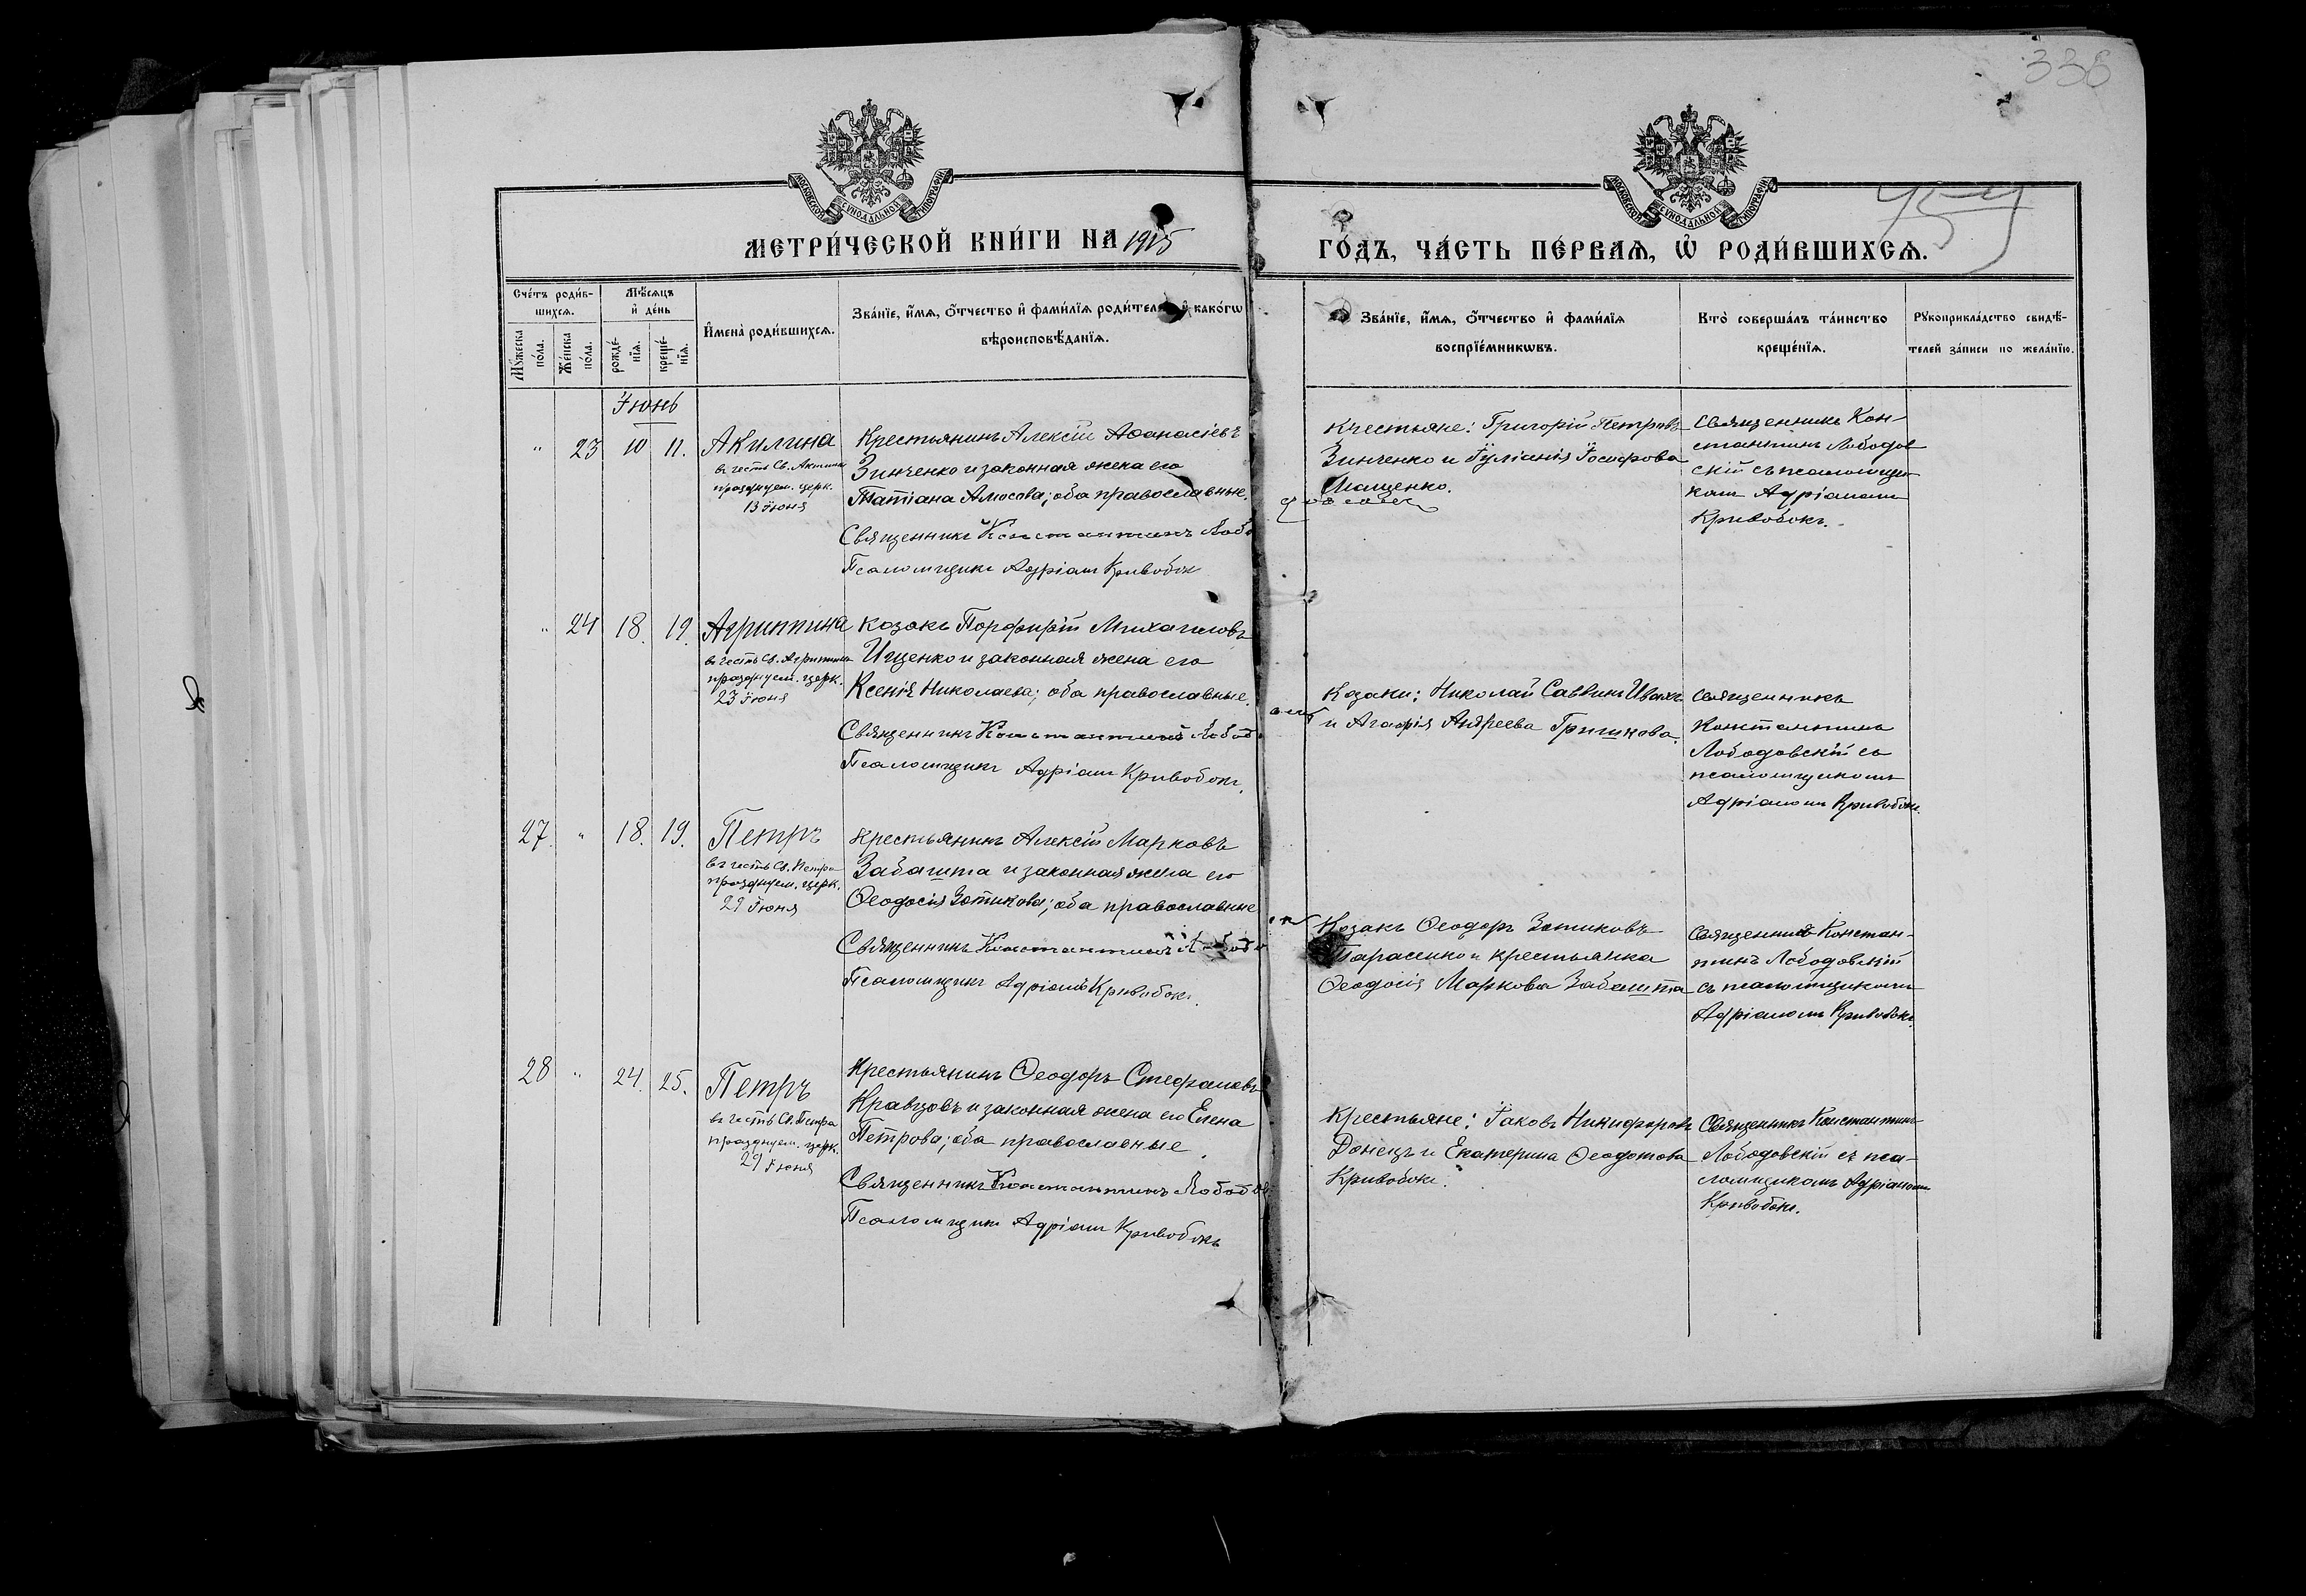 338
МОСКОВСКОЙ СУНОДАЛЬНОЙ ТИПОГРАФІИ
МОСКОВСКОЙ СУНОДАЛЬНОЙ ТИПОГРАФІИ
МЕТРИ́ЧЕСКОЙ КНИ́ГИ НА 1915
ГО́ДЪ, ЧА́СТЬ ПЕ́РВАѦ, Ѡ РОДИ́ВШИХСѦ.
Сче́тъ роди́в-
шихсѧ.
Мꙋ́жеска по́ла.
Же́нска по́ла.
Мѣ́сѧцъ
и де́нь
рожде́-
нїѧ.
креще́-
нїѧ.
Имена̀ роди́вшихсѧ.
Зва́нїе, и́мѧ, ѻ́тчество и фами́лїѧ родител и како́гѡ
вѣроисповѣ́данїѧ.
Зва́нїе, и́мѧ, ѻ́тчество и фами́лїѧ
воспрїе́мникѡвъ.
Кто̀ соверша́лъ та́инство
креще́нїѧ.
Рꙋкоприкла́дство свидѣ́-
телей за́писи по жела́нїю.
Іюнь
" 23 10 11. Акилина
въ честь Св. Акилины
празднуем. церк.
13 Іюня
Крестьянинъ Алексій Аѳанасіевъ
Зинченко и законная жена его
Татіана Амосова; оба православные.
Священникъ Константинъ Лобо
Псаломщикъ Адріанъ Кривобок
Крестьяне: Григорій Петровъ
Зинченко и Іуліанія Іосифова
Мащенко.
довскій
Священникъ Кон-
стантинъ Лободов
скій съ псаломщи
комъ Адріаномъ
Кривобокъ.
" 24 18. 19. Агриппина
въ честь Св. Агриппины
празднуем. церк.
23 Іюня
Козакъ Порфирій Михаиловъ
Ищенко и законная жена его
Ксенія Николаева; оба православные.
Священникъ Константинъ Лободо
Псаломщикъ Адріанъ Кривобокъ.
Козаки: Николай Саввинъ Ивахъ
и Агафія Андреева Гришкова.
Священникъ
Константинъ
Лободовскій съ
псаломщикомъ
Адріаномъ Кривобокъ.
27. " 18. 19. Петръ
въ честь Св. Петра
празднуем. церк.
29 Іюня
Крестьянинъ Алексій Марковъ
Забашта и законная жена его
Ѳеодосія Зотикова; оба православные
Священникъ Константинъ Лободо
Псаломщикъ Адріанъ Кривобокъ.
Козакъ Ѳеодоръ Зотиковъ
Тарасенко и крестьянка
Ѳеодосія Маркова Забашта
Священникъ Констан-
тинъ Лободовскій
съ псаломщикомъ
Адріаномъ Кривобокъ.
28 " 24. 25. Петръ
въ честь Св. Петра
празднуем. церк.
29 Іюня
Крестьянинъ Ѳеодоръ Стефановъ
Кравцовъ и законная жена его Елена
Петрова; оба православные.
Священникъ Константинъ Лободов
Псаломщикъ Адріанъ Кривобокъ
Крестьяне: Іаковъ Никифоровъ
Донецъ и Екатерина Ѳеодотова
Кривобокъ.
Священникъ Константинъ
Лободовскій съ пса-
ломщикомъ Адріаномъ
Кривобокъ.